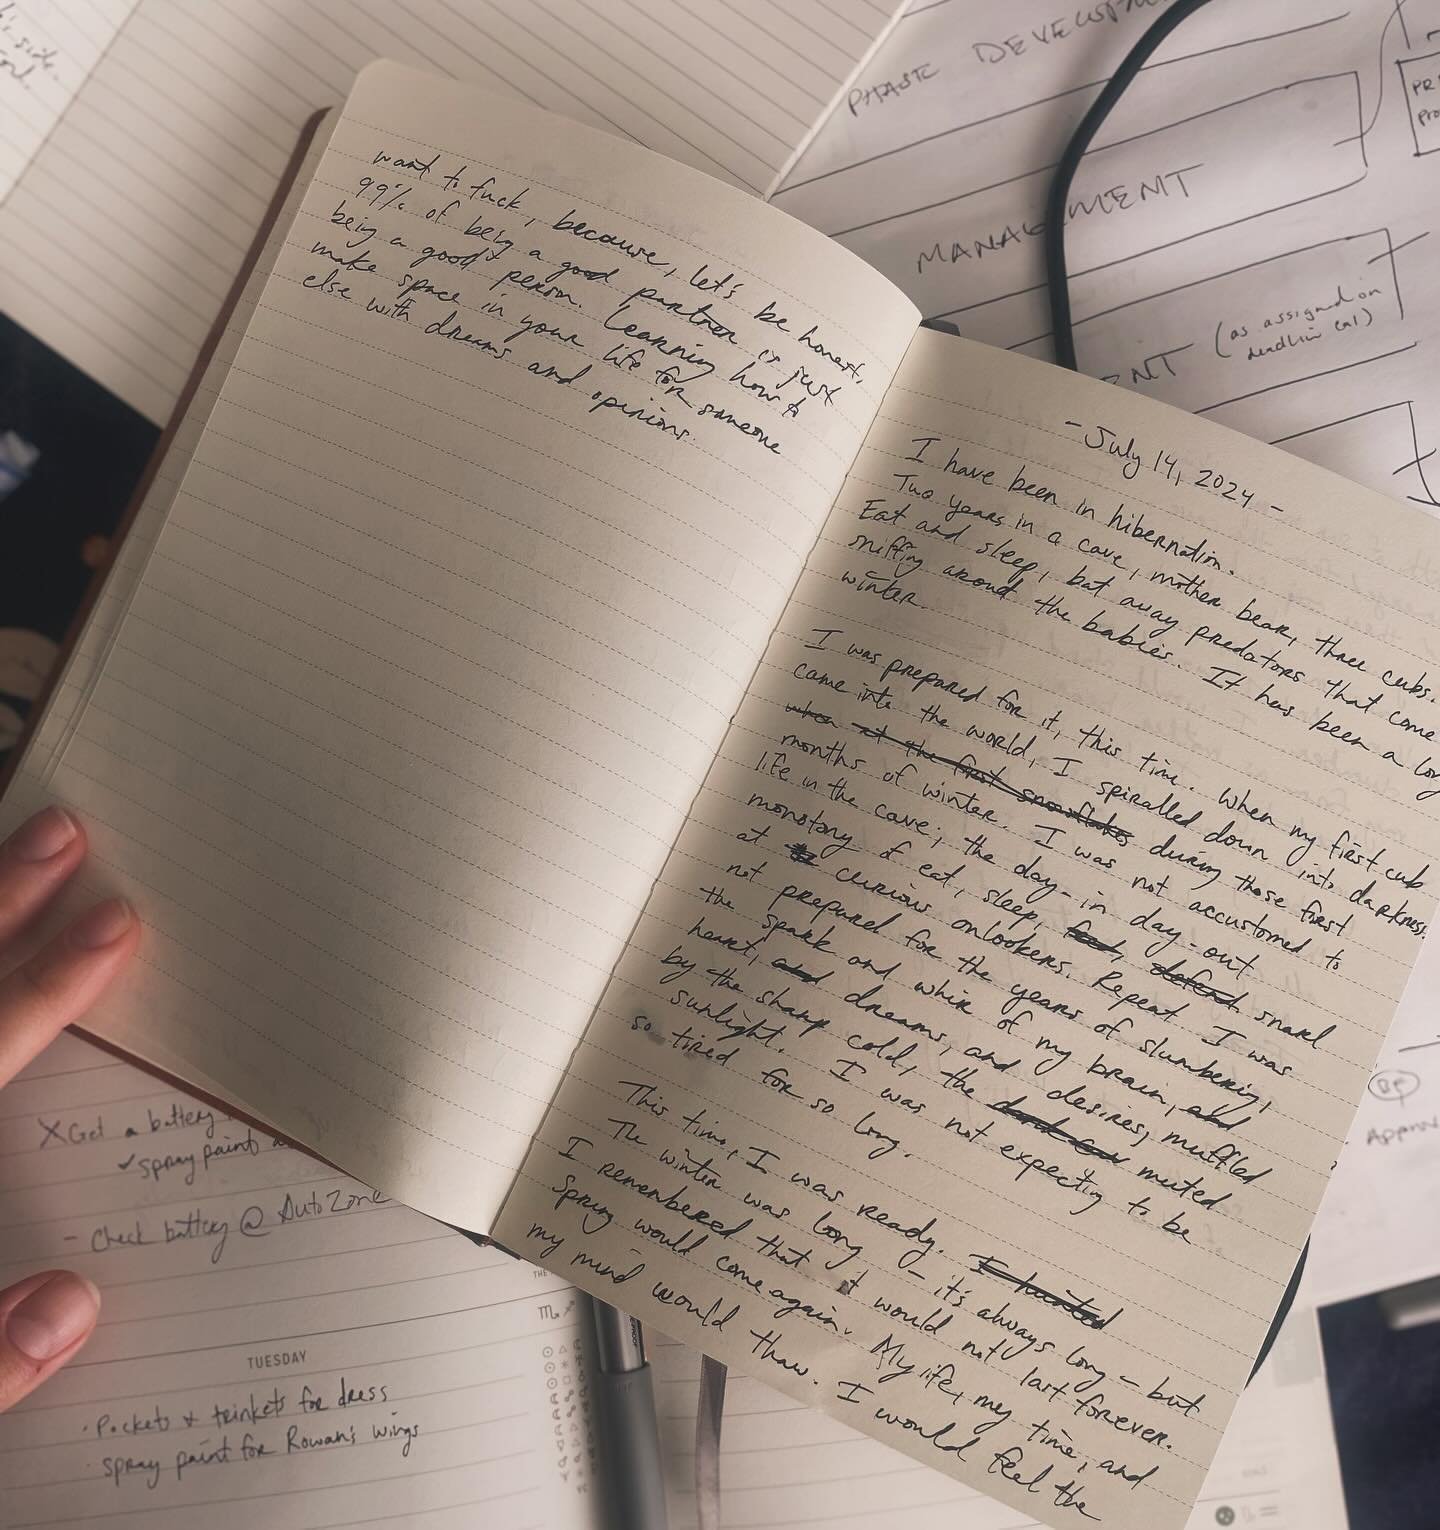 want to fuck, because, let's be honest,
99% of being a good partner is just
being a good person. Learning how to
make space in your life for someone
else with dreams and opinions.
- July 14, 2024 -
I have been in hibernation.
Two years in a cave, mother bear, three cubs.
Eat and sleep, bat away predators that come
sniffing around the babies. It has been a long
winter.
I was prepared for it, this time. When my first cub
came into the world, I spiralled down into darkness
when at the first snowflakes during those first
months of winter. I was not accustomed to
life in the cave; the day-in day-out
monotony of eat, sleep, snarl
at curious onlookers. Repeat. I was
not prepared for the years of slumbering,
the spark and whir of my brain, and
heart, and dreams, and desires, muffled
by the sharp cold, the muted
sunlight. I was not expecting to be
so tired for so long.
This time, I was ready. I hunted
The winter was long - it's always long - but
I remembered that it would not last forever.
Spring would come again. My life, my time, and
my mind would thaw. I would feel the
PHASE
MANAGEMENT
(as assigned on
deadline cal)
X Get a battery
✓ spray paint
- Check battery @ AutoZone
TUESDAY
· Pockets & trinkets for dress
· spray paint for Rowan's wings